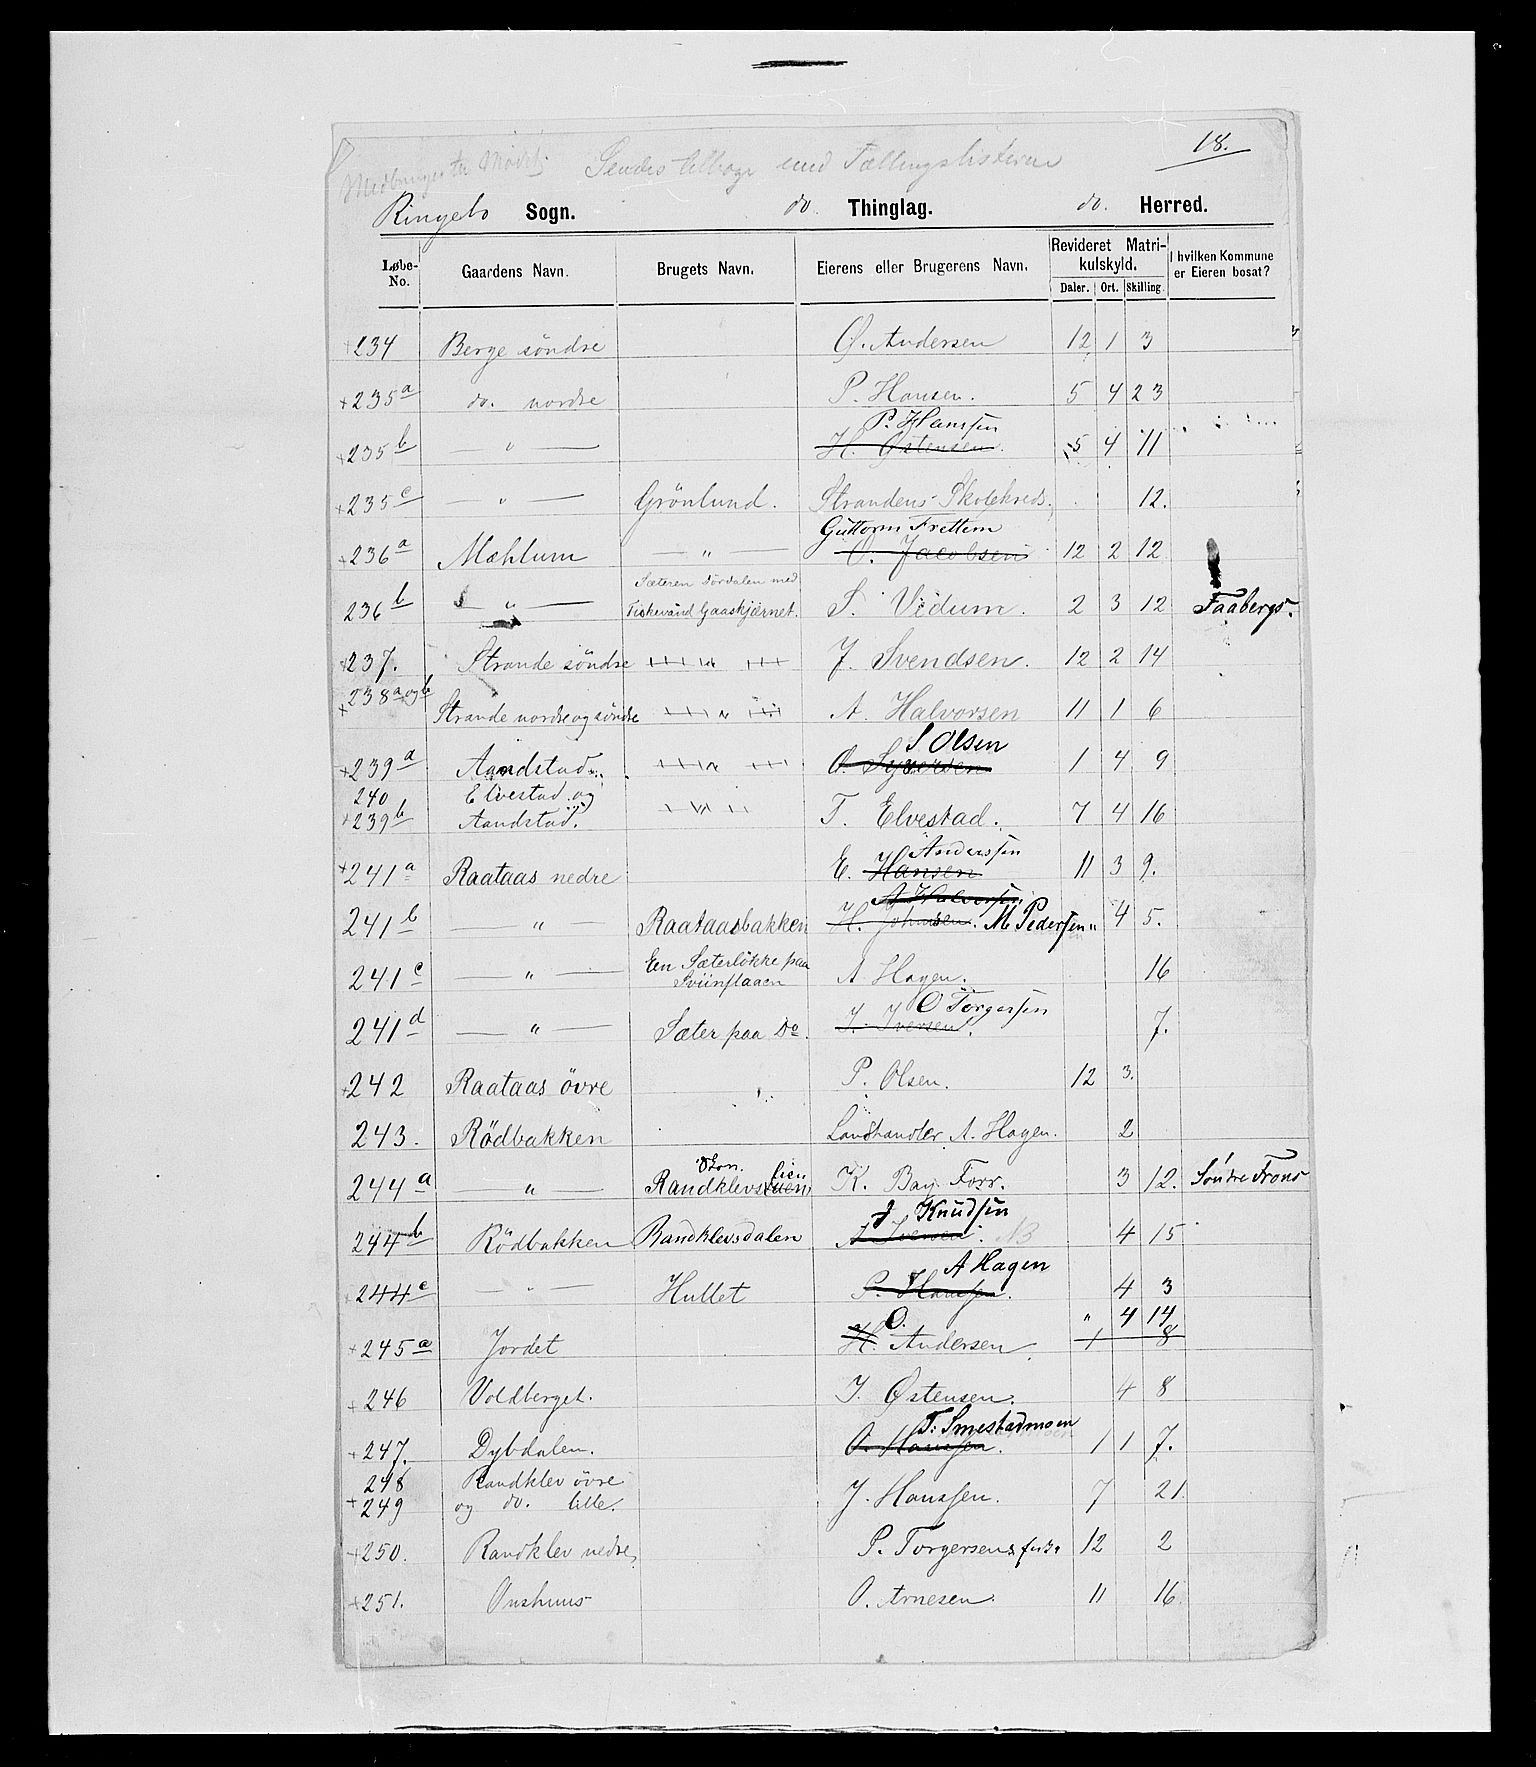 18.
Medbringes til Mødet. Sendes tilbage med Tællingslisterne
Ringebo Sogn. do. Thinglag. do. Herred.
Løbe-No. Gaardens Navn. Brugets Navn. Eierens eller Brugerens Navn. Revideret Matrikulskyld. I hvilken Kommune er Eieren bosat?
Daler. Ort. Skilling.
+234 Berge söndre Ø. Andersen 12 1 3
+235a do. nordre P. Hansen. 5 4 23
P. Hanssen
+235b — " — H. Østensen. 5 4 11
+235c — " — Grönlund. Strandens Skolekreds. 12.
Guttorm Frettem
+236a Mæhlum — " — O. Jacobsen 12 2 12
Sæteren Dördalen med
236b — " — Fiskevand Gaaskjærnet. S. Vidum. 2 3 12 Faabergs.
+237. Strande söndre " J. Svendsen. 12 2 14
+238a og b Strande nordre og söndre " A. Halvorsen 11 1 6
S Olsen
+239a Aandstad. " O. Syversen 1 4 9
240 Elvestad og
+239b Aandstad. " T. Elvestad. 7 4 16
Anderssen
+241a Raataas nedre E. Hansen 11 3 9.
A Halvorsen
241b — " — Raataasbakken H. Johnsen. M Pedersen " 4 5.
En Sæterlökke paa
241c — " — Sviinflaaen A. Hagen. 16
O Torgerssen
241d — " — Sæter paa Do. I. Iversen. 7.
+242 Raataas övre " P. Olsen. 12 3.
243. Rödbakken Landhandler A. Hagen. 2
lien
244a — " — Randklevstuen K. Bay Forr. 3 12. Söndre Frons
J Knudsen
244b Rödbakken Randklevsdalen A Iversen. NB 4 15
A Hagen
244c — " — Hullet P. Hanssen. 4 3
O. " 4 14
+245a Jordet H. Andersen 1 8
+246 Voldberget. J. Østensen. 4 8
T. Smestadmoen
+247. Dybdalen. O. Hanssen. 1 1 7.
248 Randklev övre
+249 og do. lille. J. Hanssen. 7 21
+250. Randklev nedre P. Torgersens 12 2
+251. Onshuus O. Arnesen. 11 16